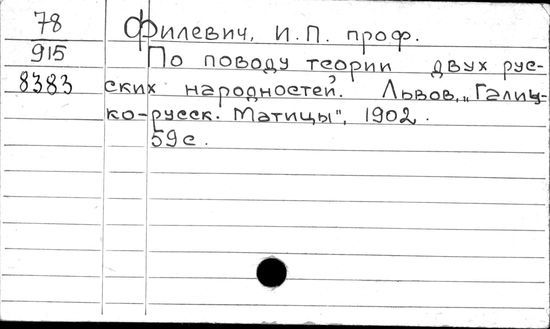 78
915
8383
Филевич, И.П. проф.
По поводу теории двух рус-
ских народностей. Львов, „Галиц-
ко-русск. Матицы", 1902.
59с.